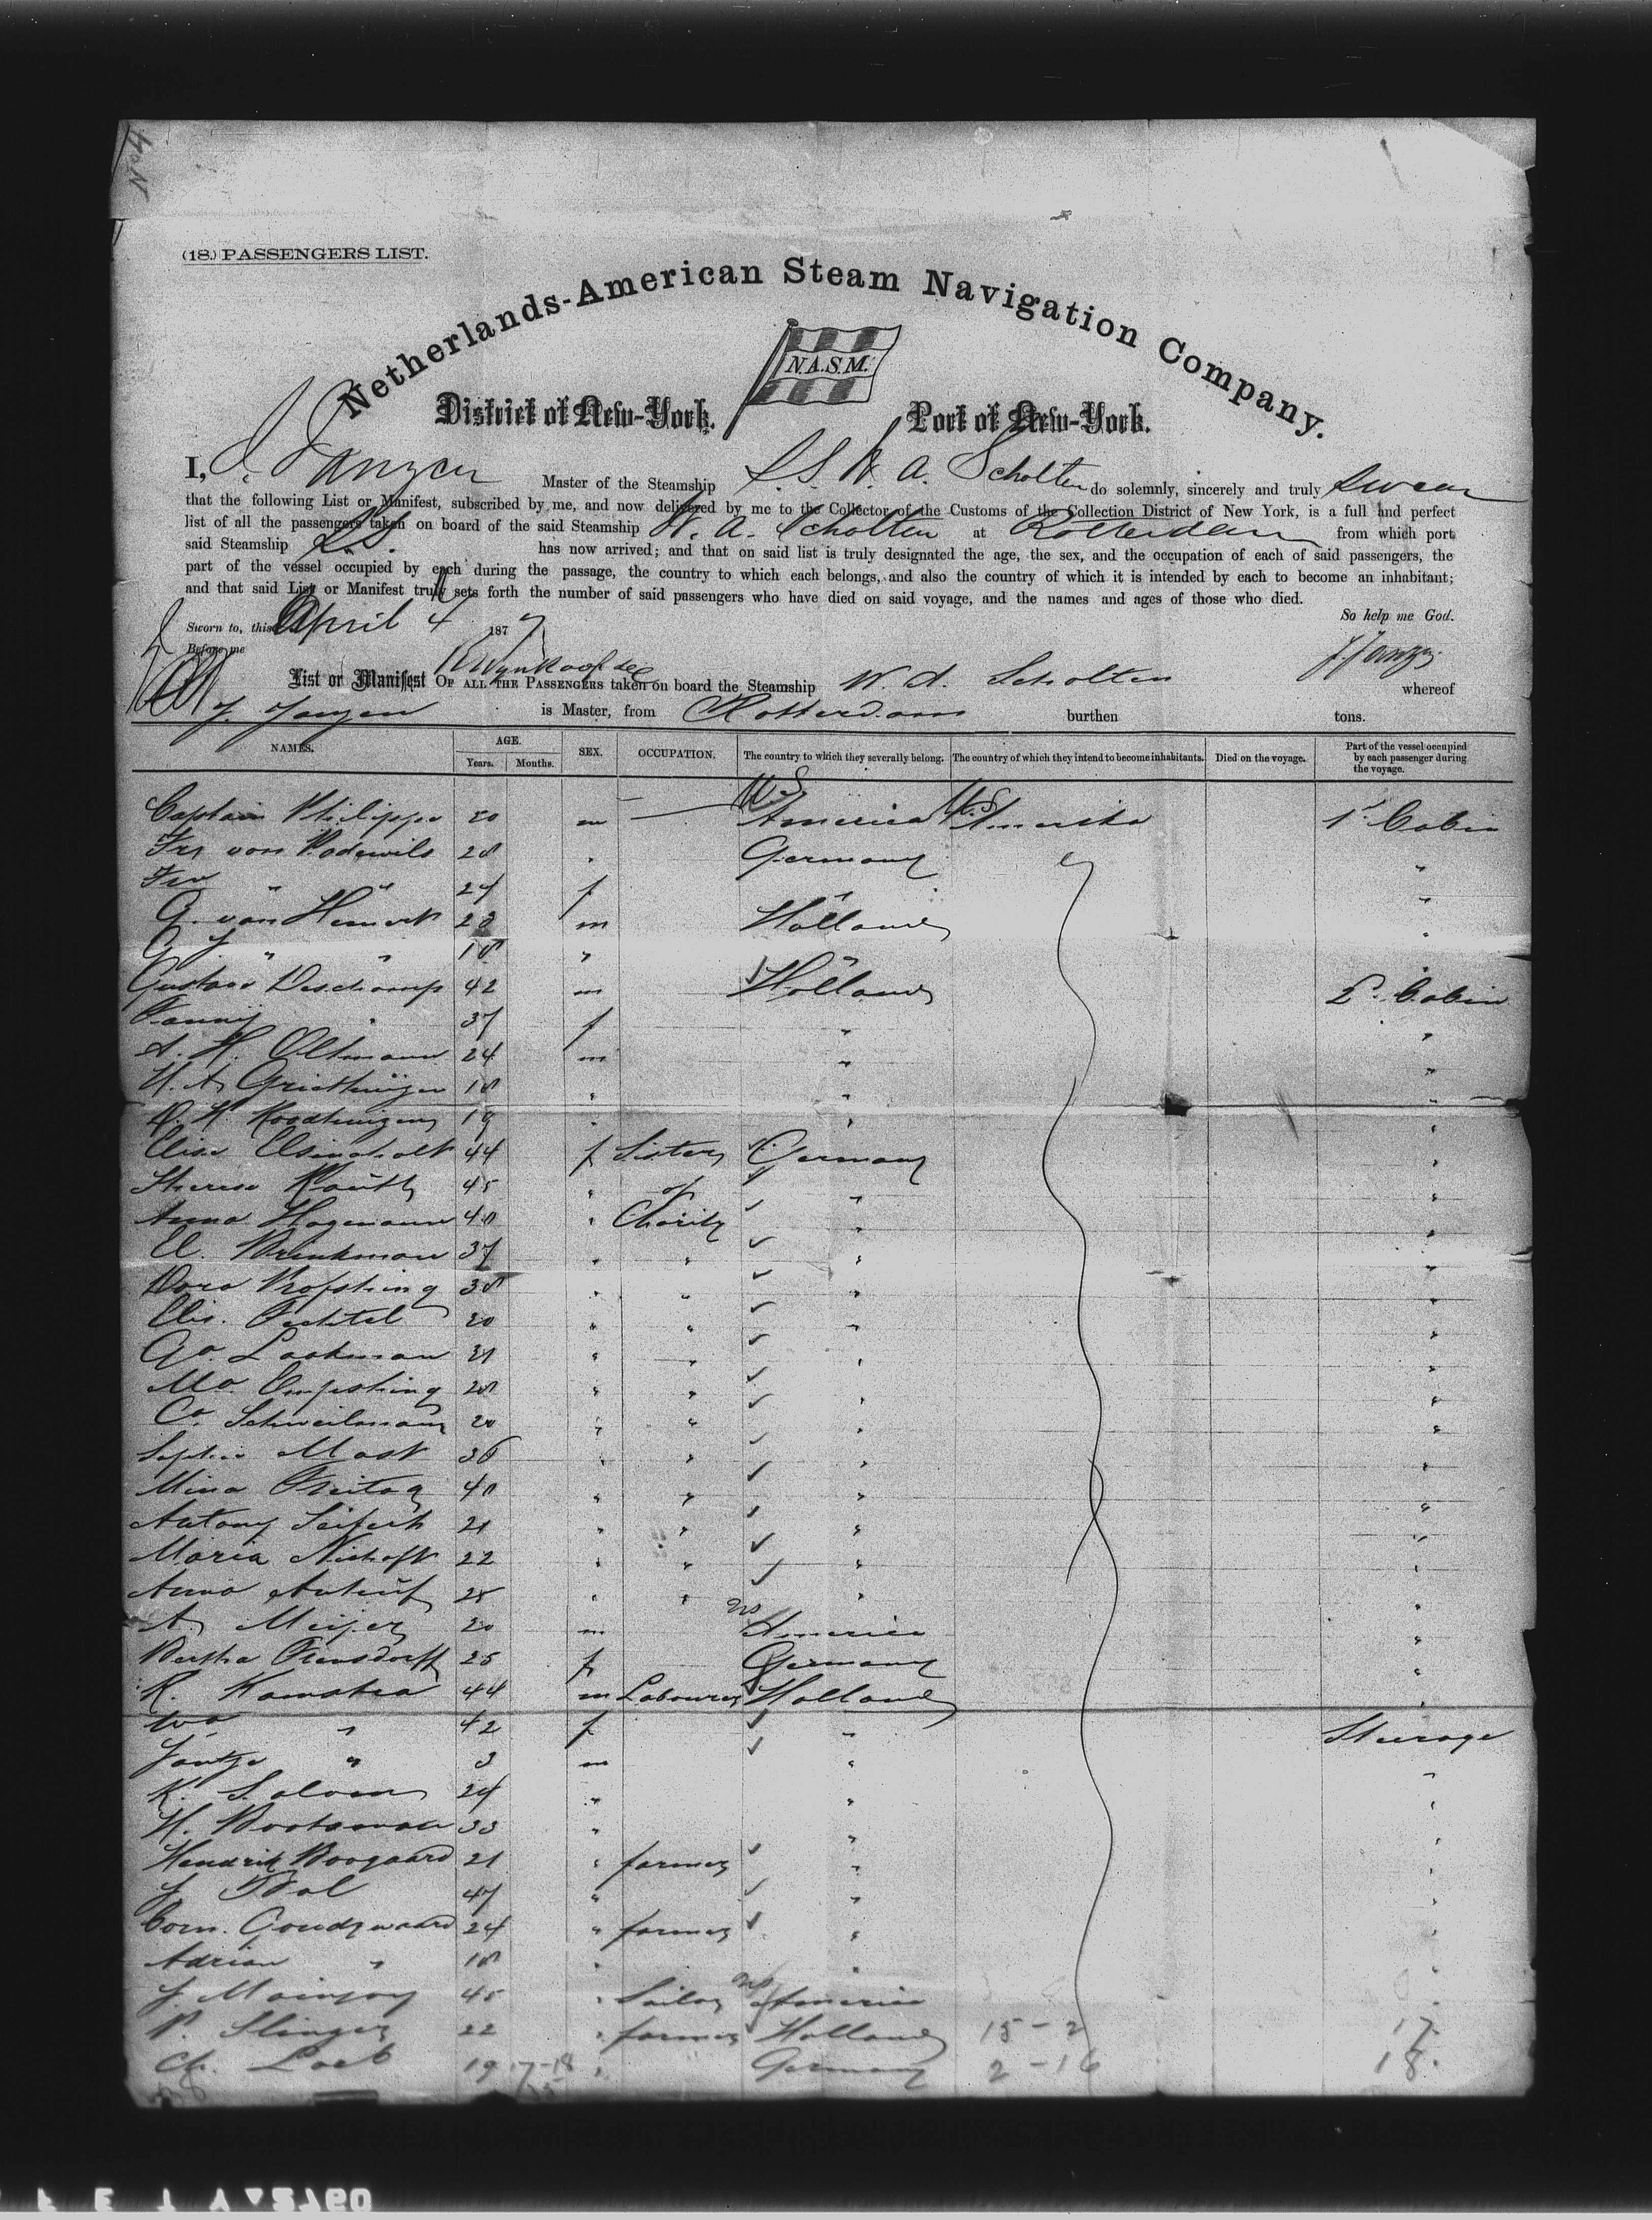 (18.) PASSENGERS LIST.
Netherlands-American Steam Navigation Company.
N.A.S.M.
District of New-York. Port of New-York.
I, J. Janzen Master of the Steamship S.S. W. A. Scholten do solemnly, sincerely and truly swear
that the following List or Manifest, subscribed by me, and now delivered by me to the Collector of the Customs of the Collection District of New York, is a full and perfect
list of all the passengers taken on board of the said Steamship W. A. Scholten at Rotterdam from which port
said Steamship S.S. has now arrived; and that on said list is truly designated the age, the sex, and the occupation of each of said passengers, the
part of the vessel occupied by each during the passage, the country to which each belongs, and also the country of which it is intended by each to become an inhabitant;
and that said List or Manifest truly sets forth the number of said passengers who have died on said voyage, and the names and ages of those who died.
So help me God.
Sworn to, this April 4 1877
J. Janzen
Before me
List or Manifest OF ALL THE PASSENGERS taken on board the Steamship W. A. Scholten whereof
J. Janzen is Master, from Rotterdam burthen tons.
NAMES. AGE. Years. Months. SEX. OCCUPATION. The country to which they severally belong. The country of which they intend to become inhabitants. Died on the voyage. Part of the vessel occupied by each passenger during the voyage.
Captain Philippe 20 m — U.S. America U.S. Amerika 1' Cabin
Frs von Podewils 28 " Germany "
Frv " " 27 f " "
G. van Hemert 23 m Holland "
G. J. " " 18 " " "
Gustave Deschamp 42 m Holland 2' Cabin
Fanny " 37 f " "
A. H. Oltmann 24 m " "
H. A. 18 " " "
D. H. 19 " " "
Elise 44 f Sisters Germany "
Therese 45 " of " "
Anna Hagemann 40 " Charity " "
E. Brinkman 37 " " " "
Dora 38 " " " "
Elis. Fechtel 20 " " " "
Ga. Lackman 31 " " " "
Ma. 28 " " " "
Ca. 20 " " " "
Sophie Mask 36 " " " "
Mina Freitag 40 " " " "
Antony Seifert 21 " " " "
Maria 22 " " " "
Anna 25 " " " "
A. Meijer 20 m US America "
Bertha Frensdorff 25 f Germany "
R. Kamstra 44 m Labourer Holland "
Wa " 42 f " Steerage
Jantje " 3 m " "
K. Salomons 24 " " "
H. Bootsman 33 " " "
Hendrik Boogaard 21 " farmer " "
J. Bal 47 " " "
Corn. Goudzwaard 24 " farmer " "
Adrian " 18 " " "
J. 45 " Sailor US America "
P. Slinger 22 " farmer Holland 15-2 17.
Ch. Loeb 19 17-18 " Germany 2-16 18.